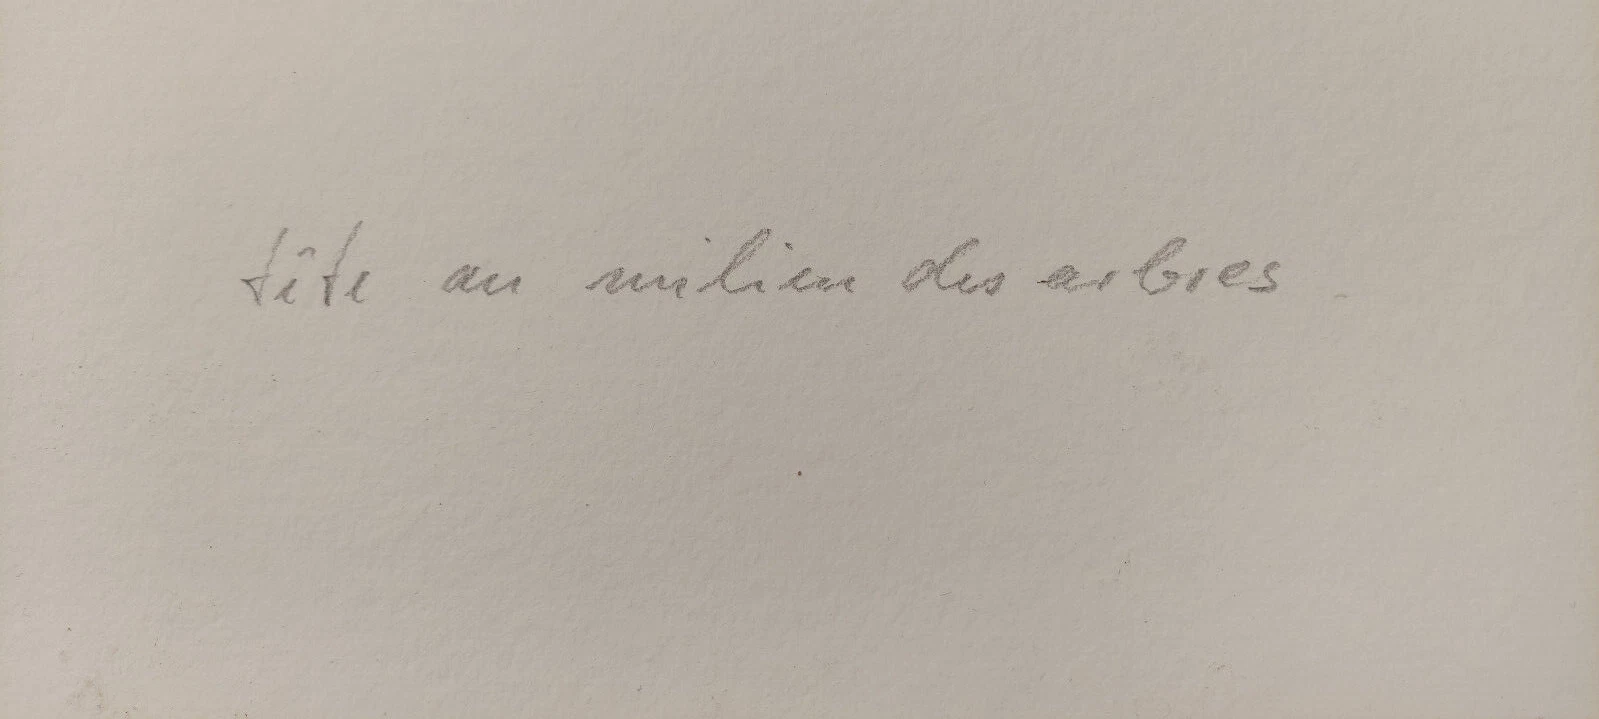 tête au milieu des arbres